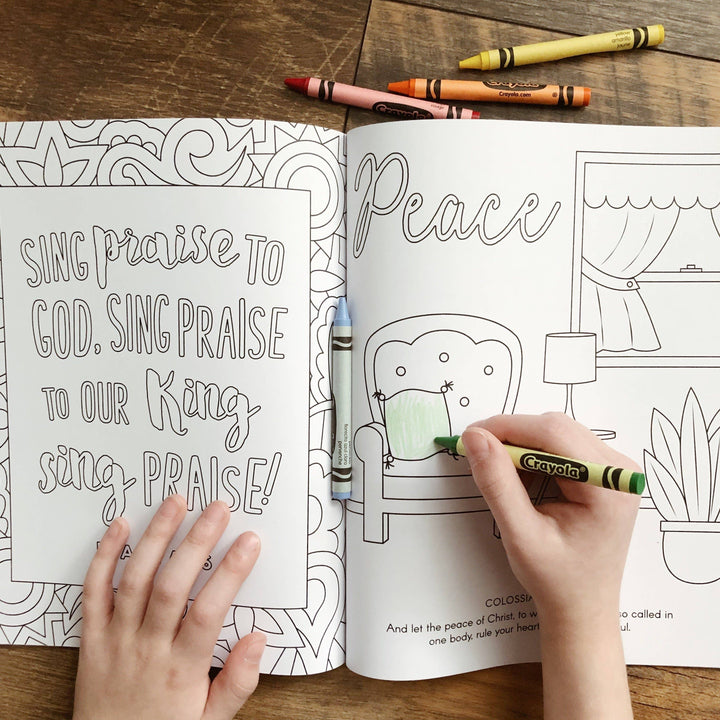 SING praise TO
GOD, SING PRAISE
TO OUR King
sing PRAISE!
Peace
And let the peace of Christ, to so called in
one body, rule your
Crayola
Crayola
Crayola.com
Crayola
yellow
amarillo
jaune